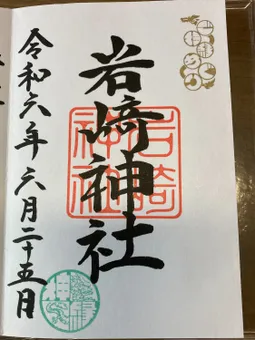 岩﨑神社
岩崎神社
令和六年六月二十五日